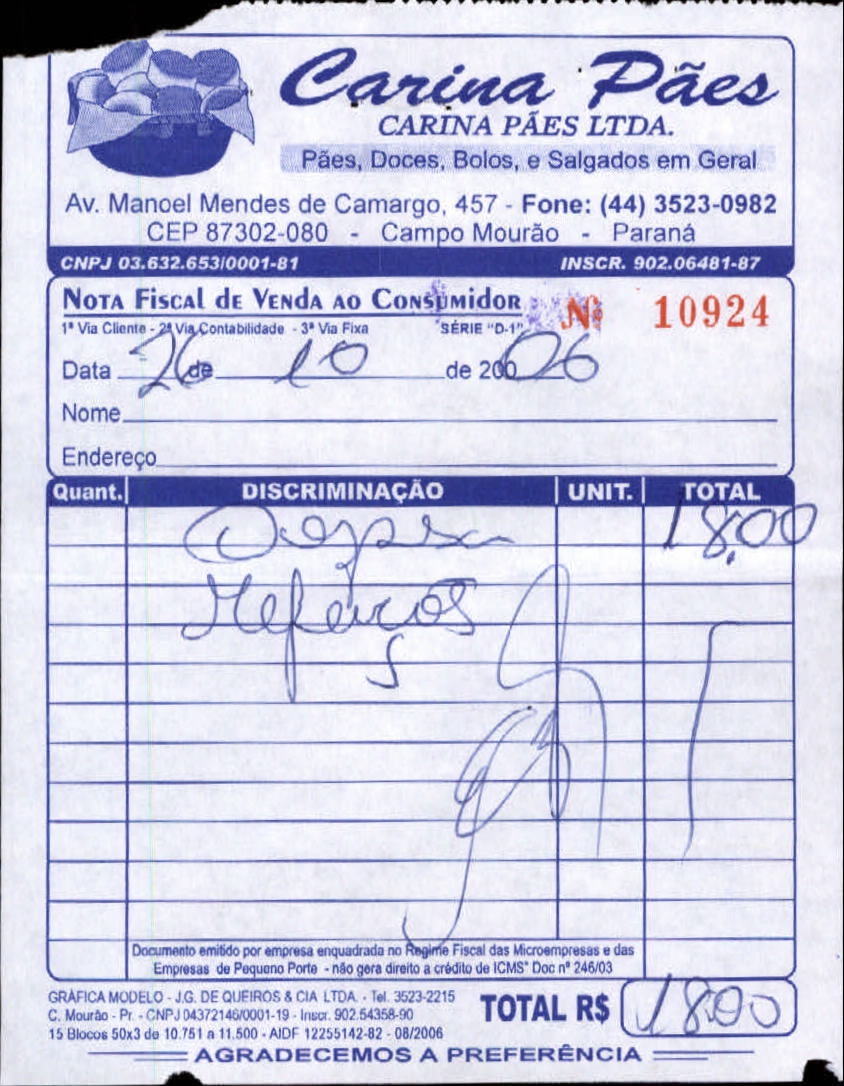 Carina Pães
CARINA PÃES LTDA.
Pães, Doces, Bolos, e Salgados em Geral
Av. Manoel Mendes de Camargo, 457 - Fone: (44) 3523-0982
CEP 87302-080 - Campo Mourão - Paraná
CNPJ 03.632.653/0001-81 INSCR. 902.06481-87
NOTA FISCAL DE VENDA AO CONSUMIDOR Nº 10924
1ª Via Cliente - 2ª Via Contabilidade - 3ª Via Fixa SÉRIE "D-1"
Data 26 de 10 de 200 06
Nome
Endereço
Quant. DISCRIMINAÇÃO UNIT. TOTAL
18,00
Documento emitido por empresa enquadrada no Regime Fiscal das Microempresas e das
Empresas de Pequeno Porte - não gera direito a crédito de ICMS" Doc nº 246/03
GRÁFICA MODELO - J.G. DE QUEIROS & CIA LTDA. - Tel. 3523-2215
C. Mourão - Pr. - CNPJ 04372146/0001-19 - Inscr. 902.54358-90
15 Blocos 50x3 de 10.751 a 11.500 - AIDF 12255142-82 - 08/2006
TOTAL R$ 18,00
AGRADECEMOS A PREFERÊNCIA